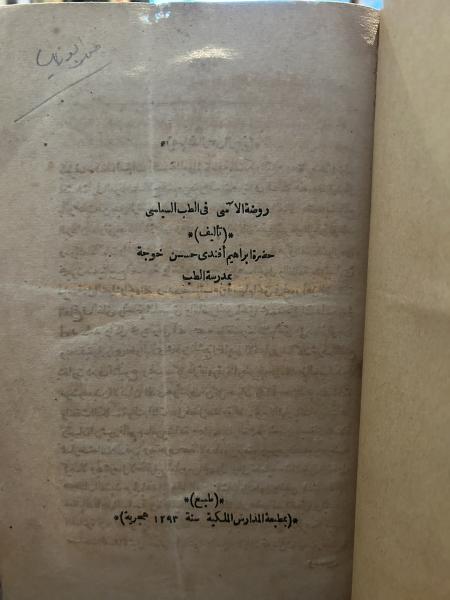 روضة الآسى فى الطب السياسى
*(تأليف)*
حضرة ابراهيم أفندى حسن خوجة
بمدرسة الطب
*(طبع)*
*(بمطبعة المدارس الملكية سنة ١٢٩٣ هجرية)*